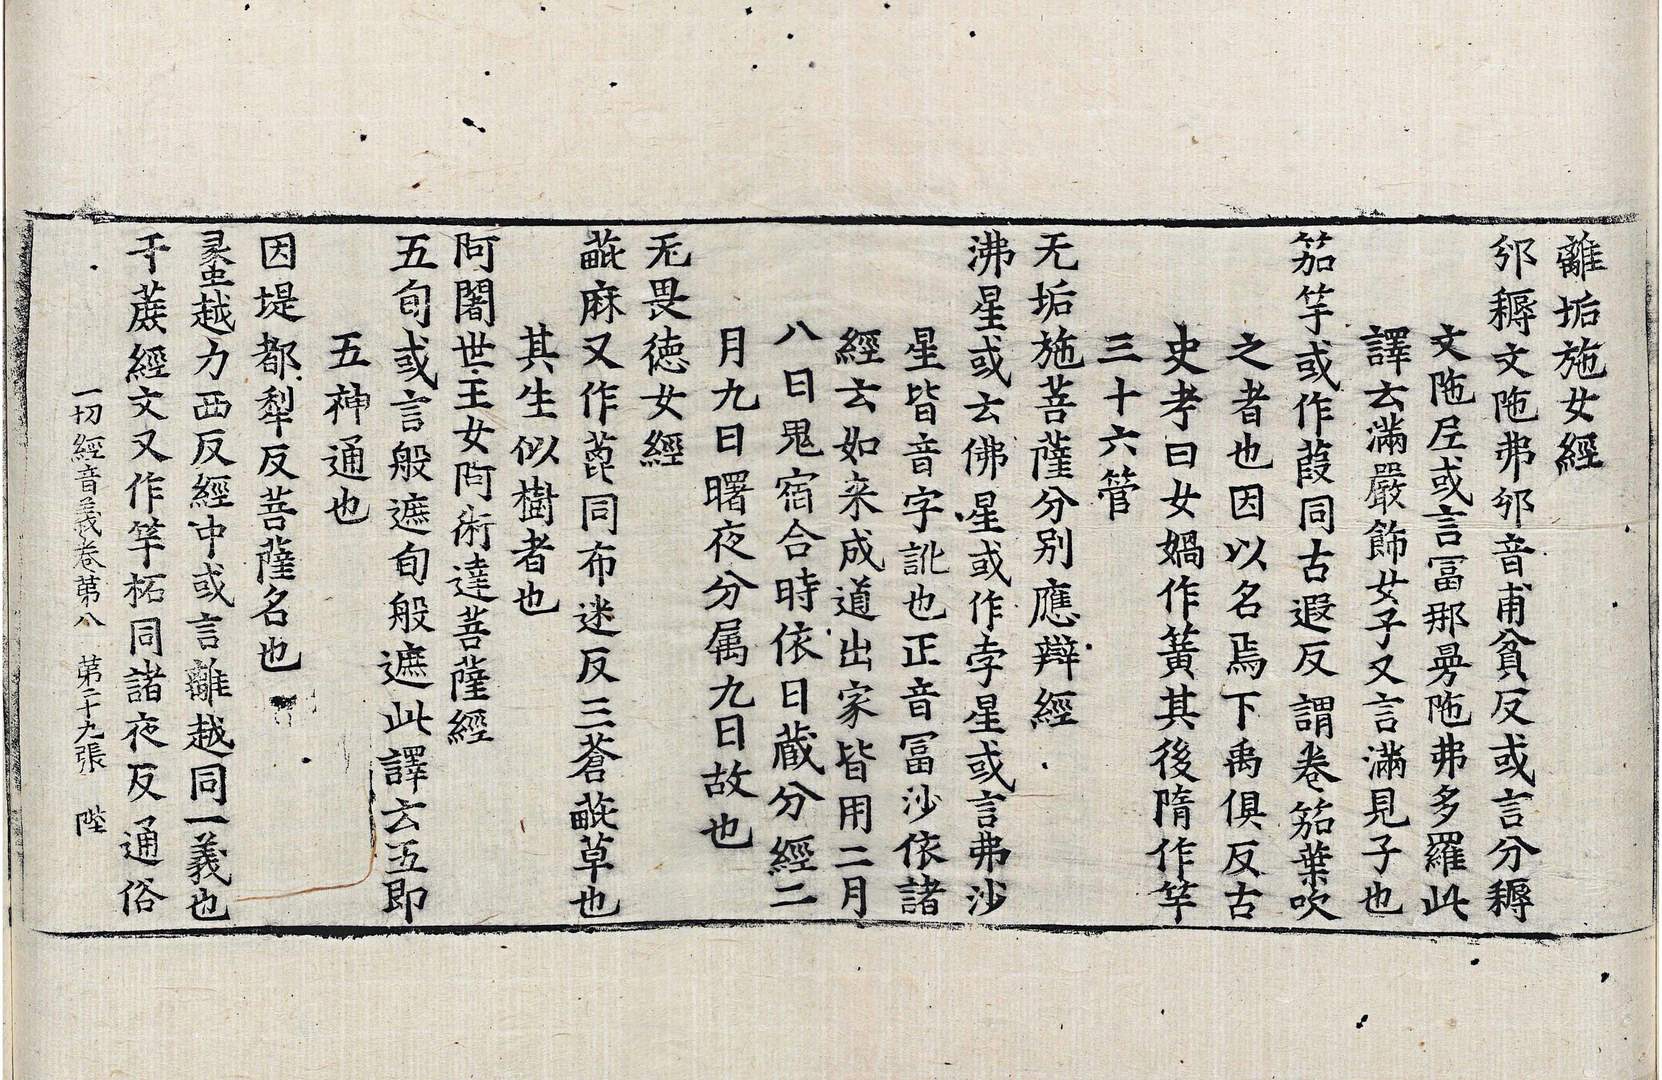 離垢施女經
邠耨文陁弗邠音甫貧反或言分耨
文陁𡰱或言冨那曼陁弗多羅此
譯云滿嚴飾女子又言滿見子也
笳竽或作葭同古遐反謂卷笳葉吹
之者也因以名焉下禹俱反古
史考曰女媧作簧其後隋作竽
三十六管
无垢施菩薩分別應辯經
沸星或云佛星或作孛星或言弗沙
星皆音字訛也正音冨沙依諸
經云如来成道出家皆用二月
八日鬼宿合時依日藏分經二
月九日曙夜分属九日故也
无畏德女經
蓖麻又作萞同布迷反三蒼蓖草也
其生似樹者也
阿闍世王女阿術達菩薩經
五旬或言般遮旬般遮此譯云五即
五神通也
因堤都犁反菩薩名也
越力西反經中或言離越同一義也
干蔗經文又作竿柘同諸夜反通俗
一切經音義卷第八 第二十九張 陛